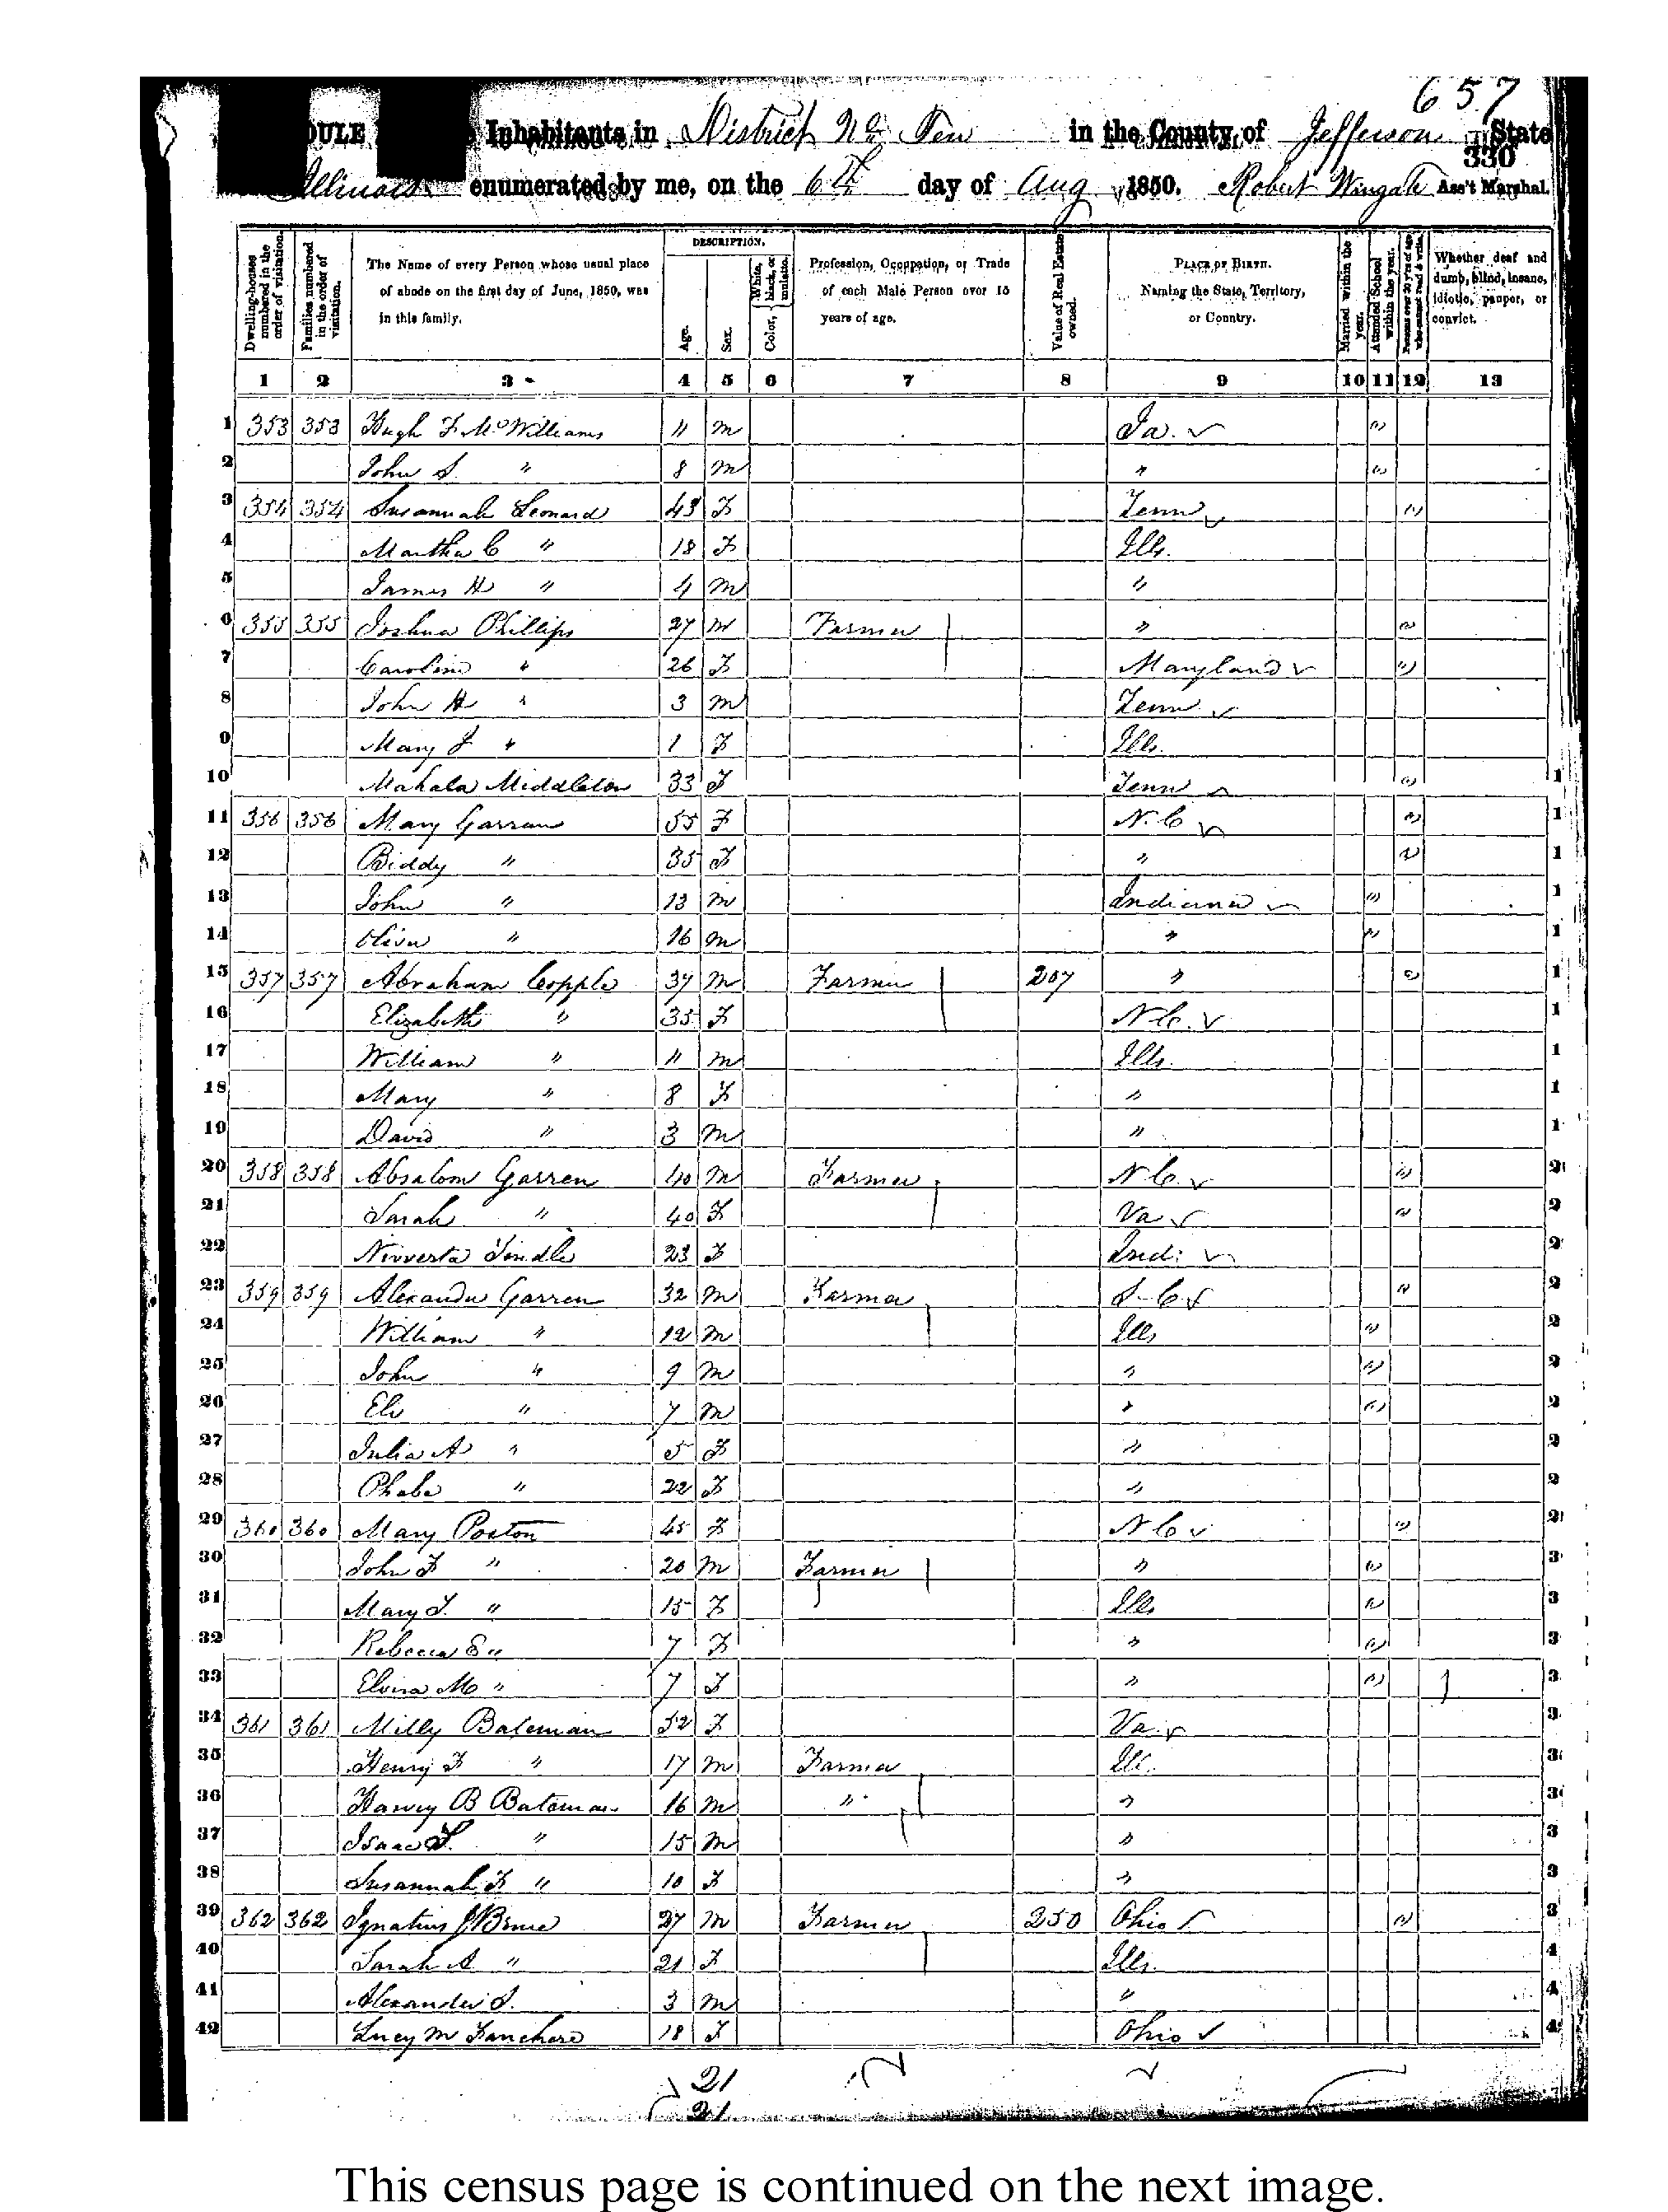 657
DULE Inhabitants in District No Ten in the County of Jefferson State
330
Illinois enumerated by me, on the 6th day of Aug 1850. Robert Wingate Ass't Marshal.
Dwelling-houses numbered in the order of visitation.
Families numbered in the order of visitation.
The Name of every Person whose usual place of abode on the first day of June, 1850, was in this family.
DESCRIPTION.
Age.
Sex.
Color, White, black, or mulatto.
Profession, Occupation, or Trade of each Male Person over 15 years of age.
Value of Real Estate owned.
PLACE OF BIRTH. Naming the State, Territory, or Country.
Married within the year.
Attended School within the year.
Persons over 20 y'rs of age who cannot read & write.
Whether deaf and dumb, blind, insane, idiotic, pauper, or convict.
1 2 3 4 5 6 7 8 9 10 11 12 13
1 353 353 Hugh F McWilliams 11 m Ia. "
2 John S. " 8 m " "
3 354 354 Susannah Leonard 43 F Tenn "
4 Martha C " 18 F Ills.
5 James H " 4 m "
6 355 355 Joshua Phillips 27 m Farmer " "
7 Caroline " 26 F Maryland "
8 John H " 3 m Tenn
9 Mary J " 1 F Ills.
10 Mahala Middleton 33 F Tenn " 1
11 356 356 Mary Garran 55 F N.C " 1
12 Biddy " 35 F " " 1
13 John " 13 m Indiana " 1
14 Oliver " 16 m " " 1
15 357 357 Abraham Copple 37 m Farmer 207 " " 1
16 Elizabeth " 35 F N C. 1
17 William " 11 m Ills. 1
18 Mary " 8 F " 1
19 David " 3 m " 1
20 358 358 Absalom Garren 40 m Farmer N C. " 2
21 Sarah " 40 F Va " 2
22 Tindle 23 F Ind: 2
23 359 359 Alexander Garren 32 m Farmer S-C " 2
24 William " 12 m Ills " 2
25 John " 9 m " " 2
26 Eli " 7 m " " 2
27 Julia A " 5 F " 2
28 Phebe " 22 F " 2
29 360 360 Mary Poston 45 F N C " 2
30 John F " 20 m Farmer " " 3
31 Mary J. " 15 F Ills " 3
32 Rebecca E " 7 F " " 3
33 Elvira M " 7 F " " 3
34 361 361 Milly Bateman 52 F Va. 3
35 Henry F " 17 m Farmer Ill. 3
36 Harvey B Bateman 16 m " " 3
37 Isaac L. " 15 m " 3
38 Susannah F " 10 F " 3
39 362 362 Ignatius J Bruce 27 m Farmer 250 Ohio " 3
40 Sarah A " 21 F Ills. 4
41 Alexander S. 3 m " 4
42 Lucy M Fanchere 18 F Ohio 4
21
21
This census page is continued on the next image.